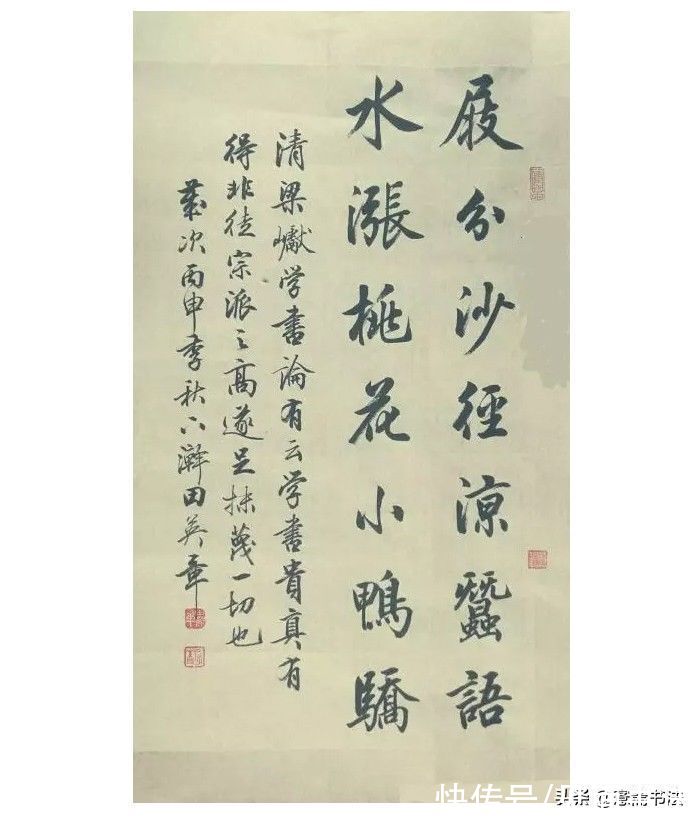 屐分沙徑涼蠶語
水漲桃花小鴨驕
清梁巘学書論有云学書貴真有
得非徒宗派之高遂足抹蔑一切也
歲次丙申季秋下澣田英章
快传号/
头条 @ 书法